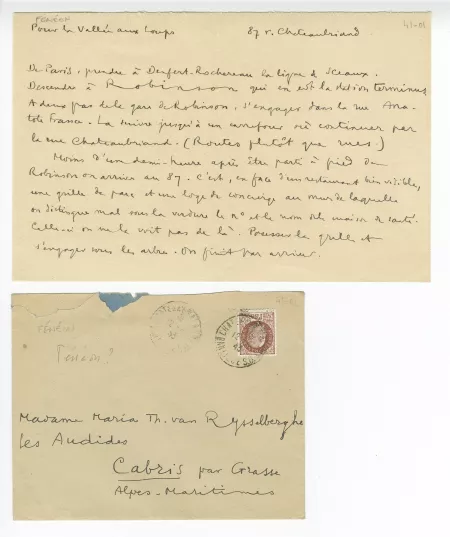 FÉNÉON
43-01
Pour la Vallée aux Loups
87 r. Chateaubriand
De Paris, prendre à Denfert-Rochereau la ligne de Sceaux.
Descendre à Robinson qui en est la station terminus
A deux pas de la gare de Robinson, s'engager dans la rue Ana-
tole France. La suivre jusqu'à un carrefour où continuer par
la rue Chateaubriand. (Routes plutôt que rues.)
Moins d'un demi-heure après être parti à pied de
Robinson on arrive au 87. C'est, en face d'un restaurant bien visible,
une grille de parc et une loge de concierge au mur de laquelle
on distingue mal sous la verdure le n° et le nom de la maison de santé.
Celle-ci on ne la voit pas de là. Pousser la grille et
s'engager sous les arbres. On finit par arriver.
FÉNÉON
Fénéon?
Madame Maria Th. van Rysselberghe
Les Audides
Cabris par Grasse
Alpes-Maritimes